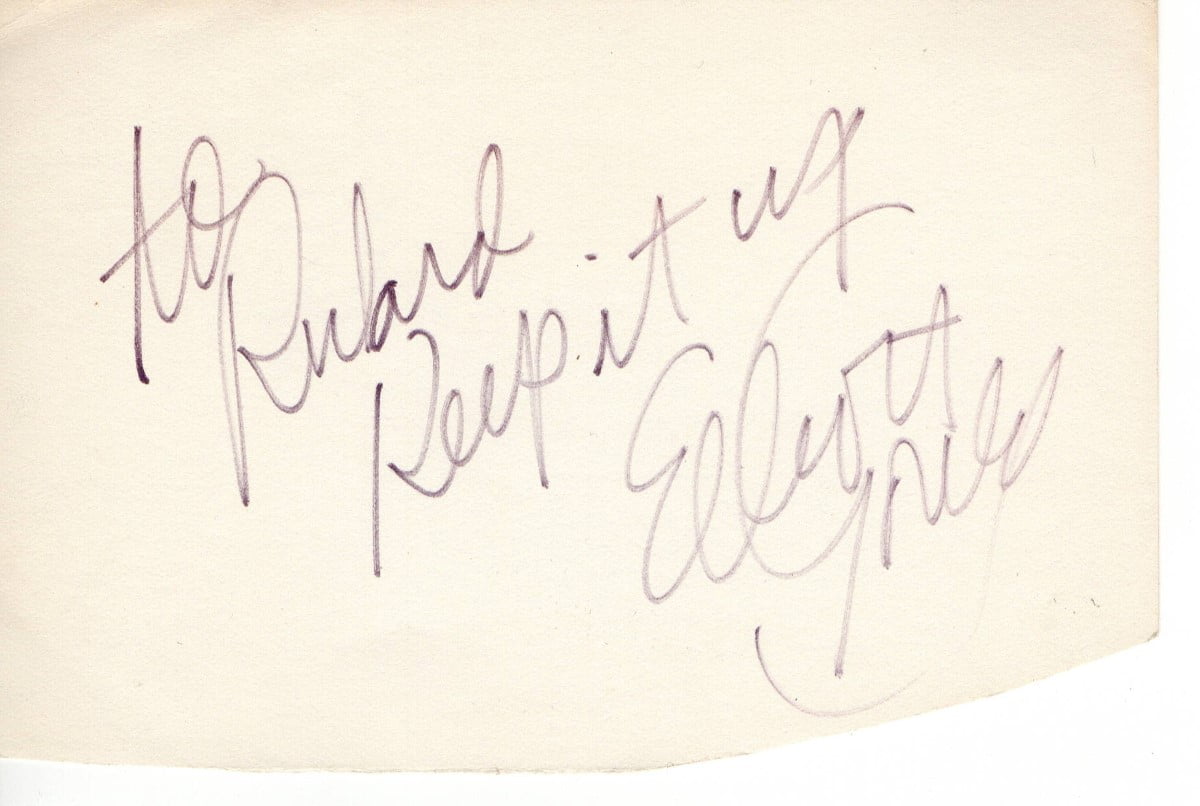 to
Richard
Keep it up
Elliott
Gould